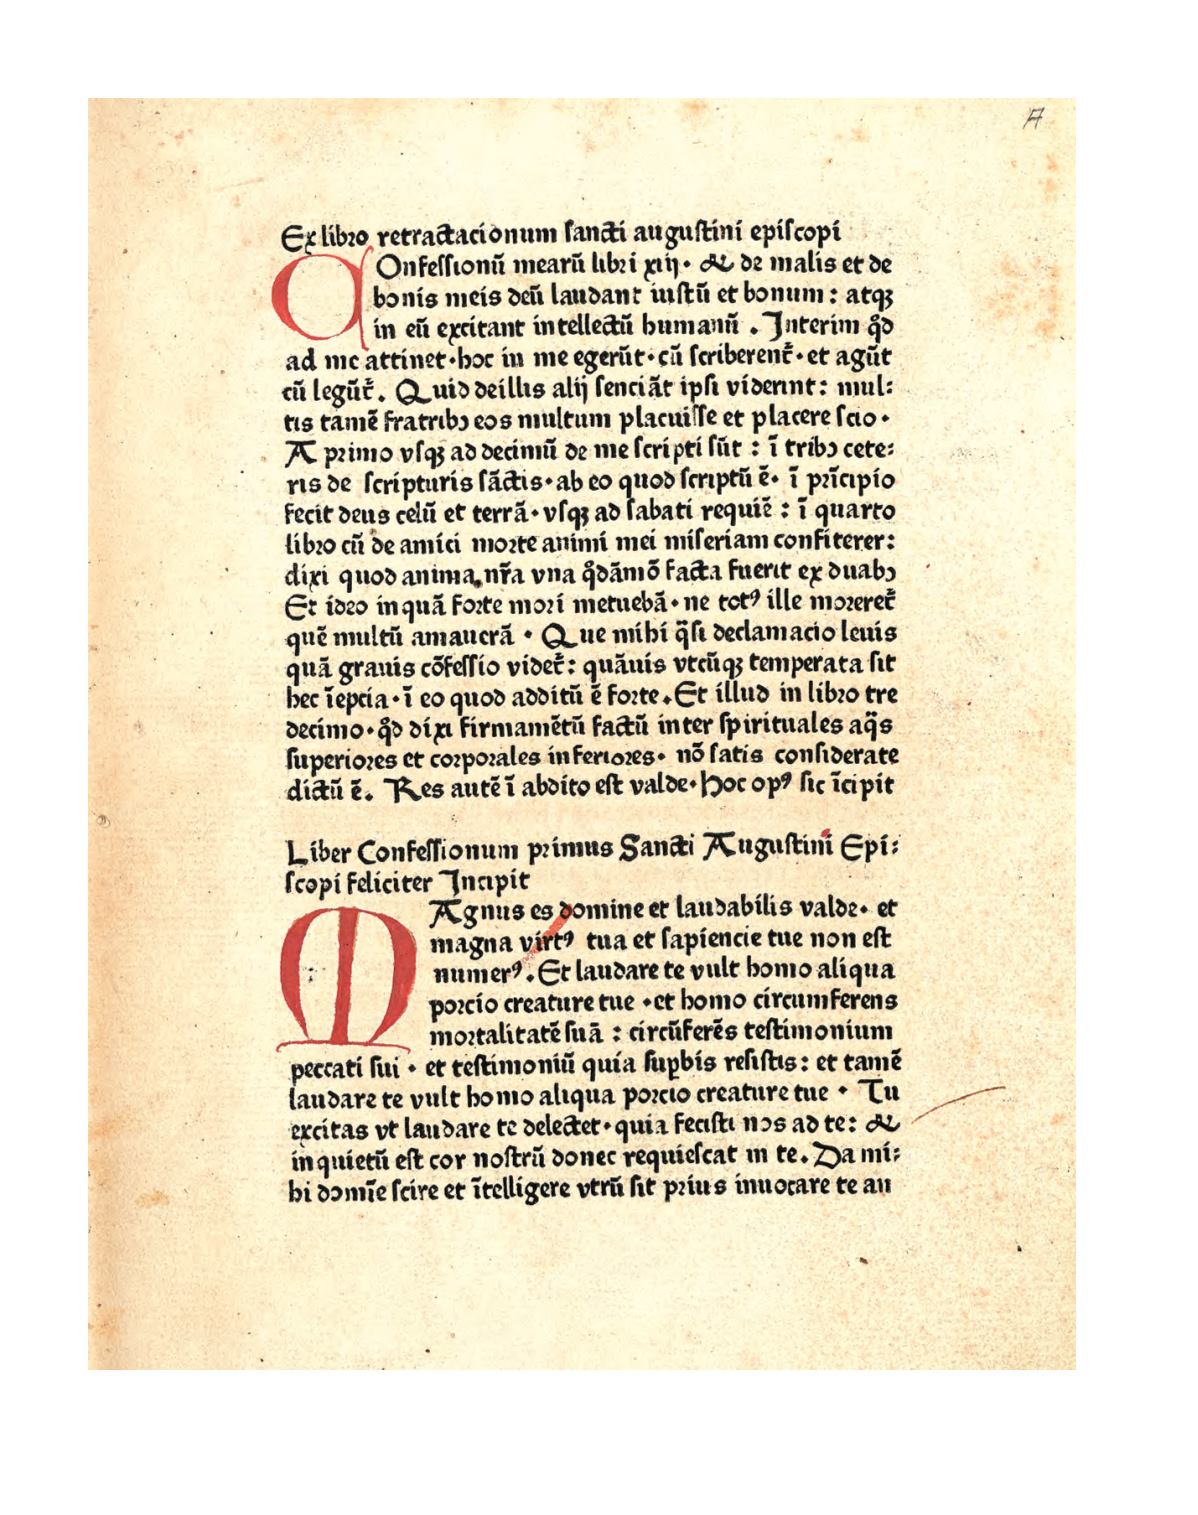 A
Ex libro retractacionum sancti augustini episcopi
COnfessionū mearū libri xiij· & de malis et de
bonis meis deū laudant iustū et bonum : atqꝫ
in eū excitant intellectū humanū . Interim qd̄
ad me attinet·hoc in me egerūt·cū scriberent̄·et agūt
cū legūt̄. Quid deillis alij senciāt ipsi viderint: mul:
tis tamē fratribꝫ eos multum placuisse et placere scio·
A primo vsqꝫ ad decimū de me scripti sūt : ī tribꝫ cete:
ris de scripturis sāctis·ab eo quod scriptū ē· ī prīcipio
fecit deus celū et terrā·vsqꝫ ad sabati requiē : ī quarto
libro cū de amici morte animi mei miseriam confiterer:
dixi quod anima nr̄a vna qd̄āmō facta fuerit ex duabꝫ
Et ideo inquā forte mori metuebā·ne totꝰ ille moreret̄
quē multū amauerā · Que mihi q̄si declamacio leuis
quā grauis cōfessio videt̄: quāuis vtcūqꝫ temperata sit
hec īepcia·ī eo quod additū ē forte.Et illud in libro tre
decimo·qd̄ dixi firmamētū factū inter spirituales aq̄s
superiores et corporales inferiores· nō satis considerate
dictū ē. Res autē ī abdito est valde·Hoc opꝰ sic īcipit
Liber Confessionum primus Sancti Augustini Epi:
scopi feliciter Incipit
MAgnus es domine et laudabilis valde· et
magna virtꝰ tua et sapiencie tue non est
numerꝰ.Et laudare te vult homo aliqua
porcio creature tue ·et homo circumferens
mortalitatē suā : circūferēs testimonium
peccati sui · et testimoniū quia suꝑbis resistis: et tamē
laudare te vult homo aliqua porcio creature tue · Tu
excitas vt laudare te delectet·quia fecisti nos ad te: &
inquietū est cor nostrū donec requiescat in te.Da mi:
hi domīe scire et ītelligere vtrū sit prius inuocare te an